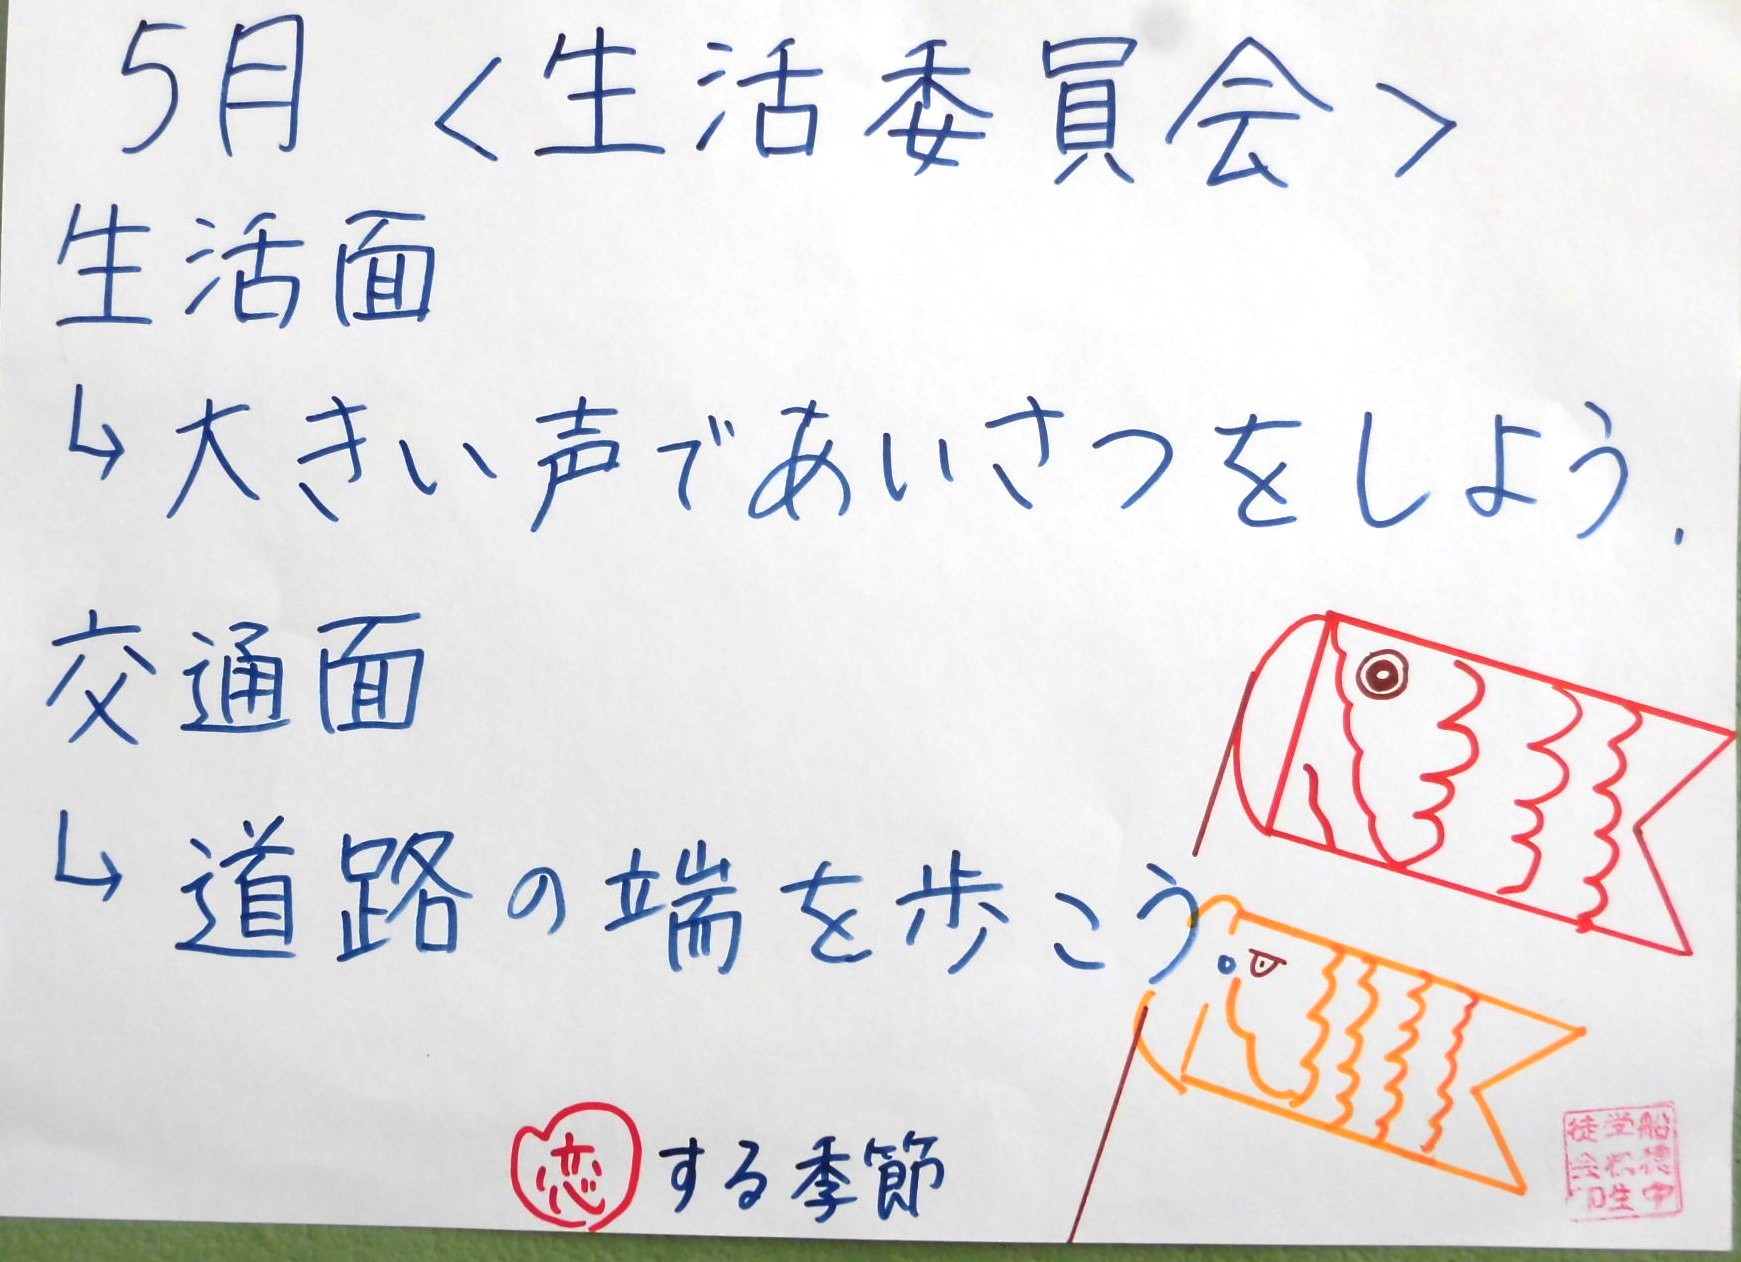 5月 <生活委員会>
生活面
↳ 大きい声であいさつをしよう.
交通面
↳ 道路の端を歩こう。
恋する季節
船穂中
学校生
徒会印